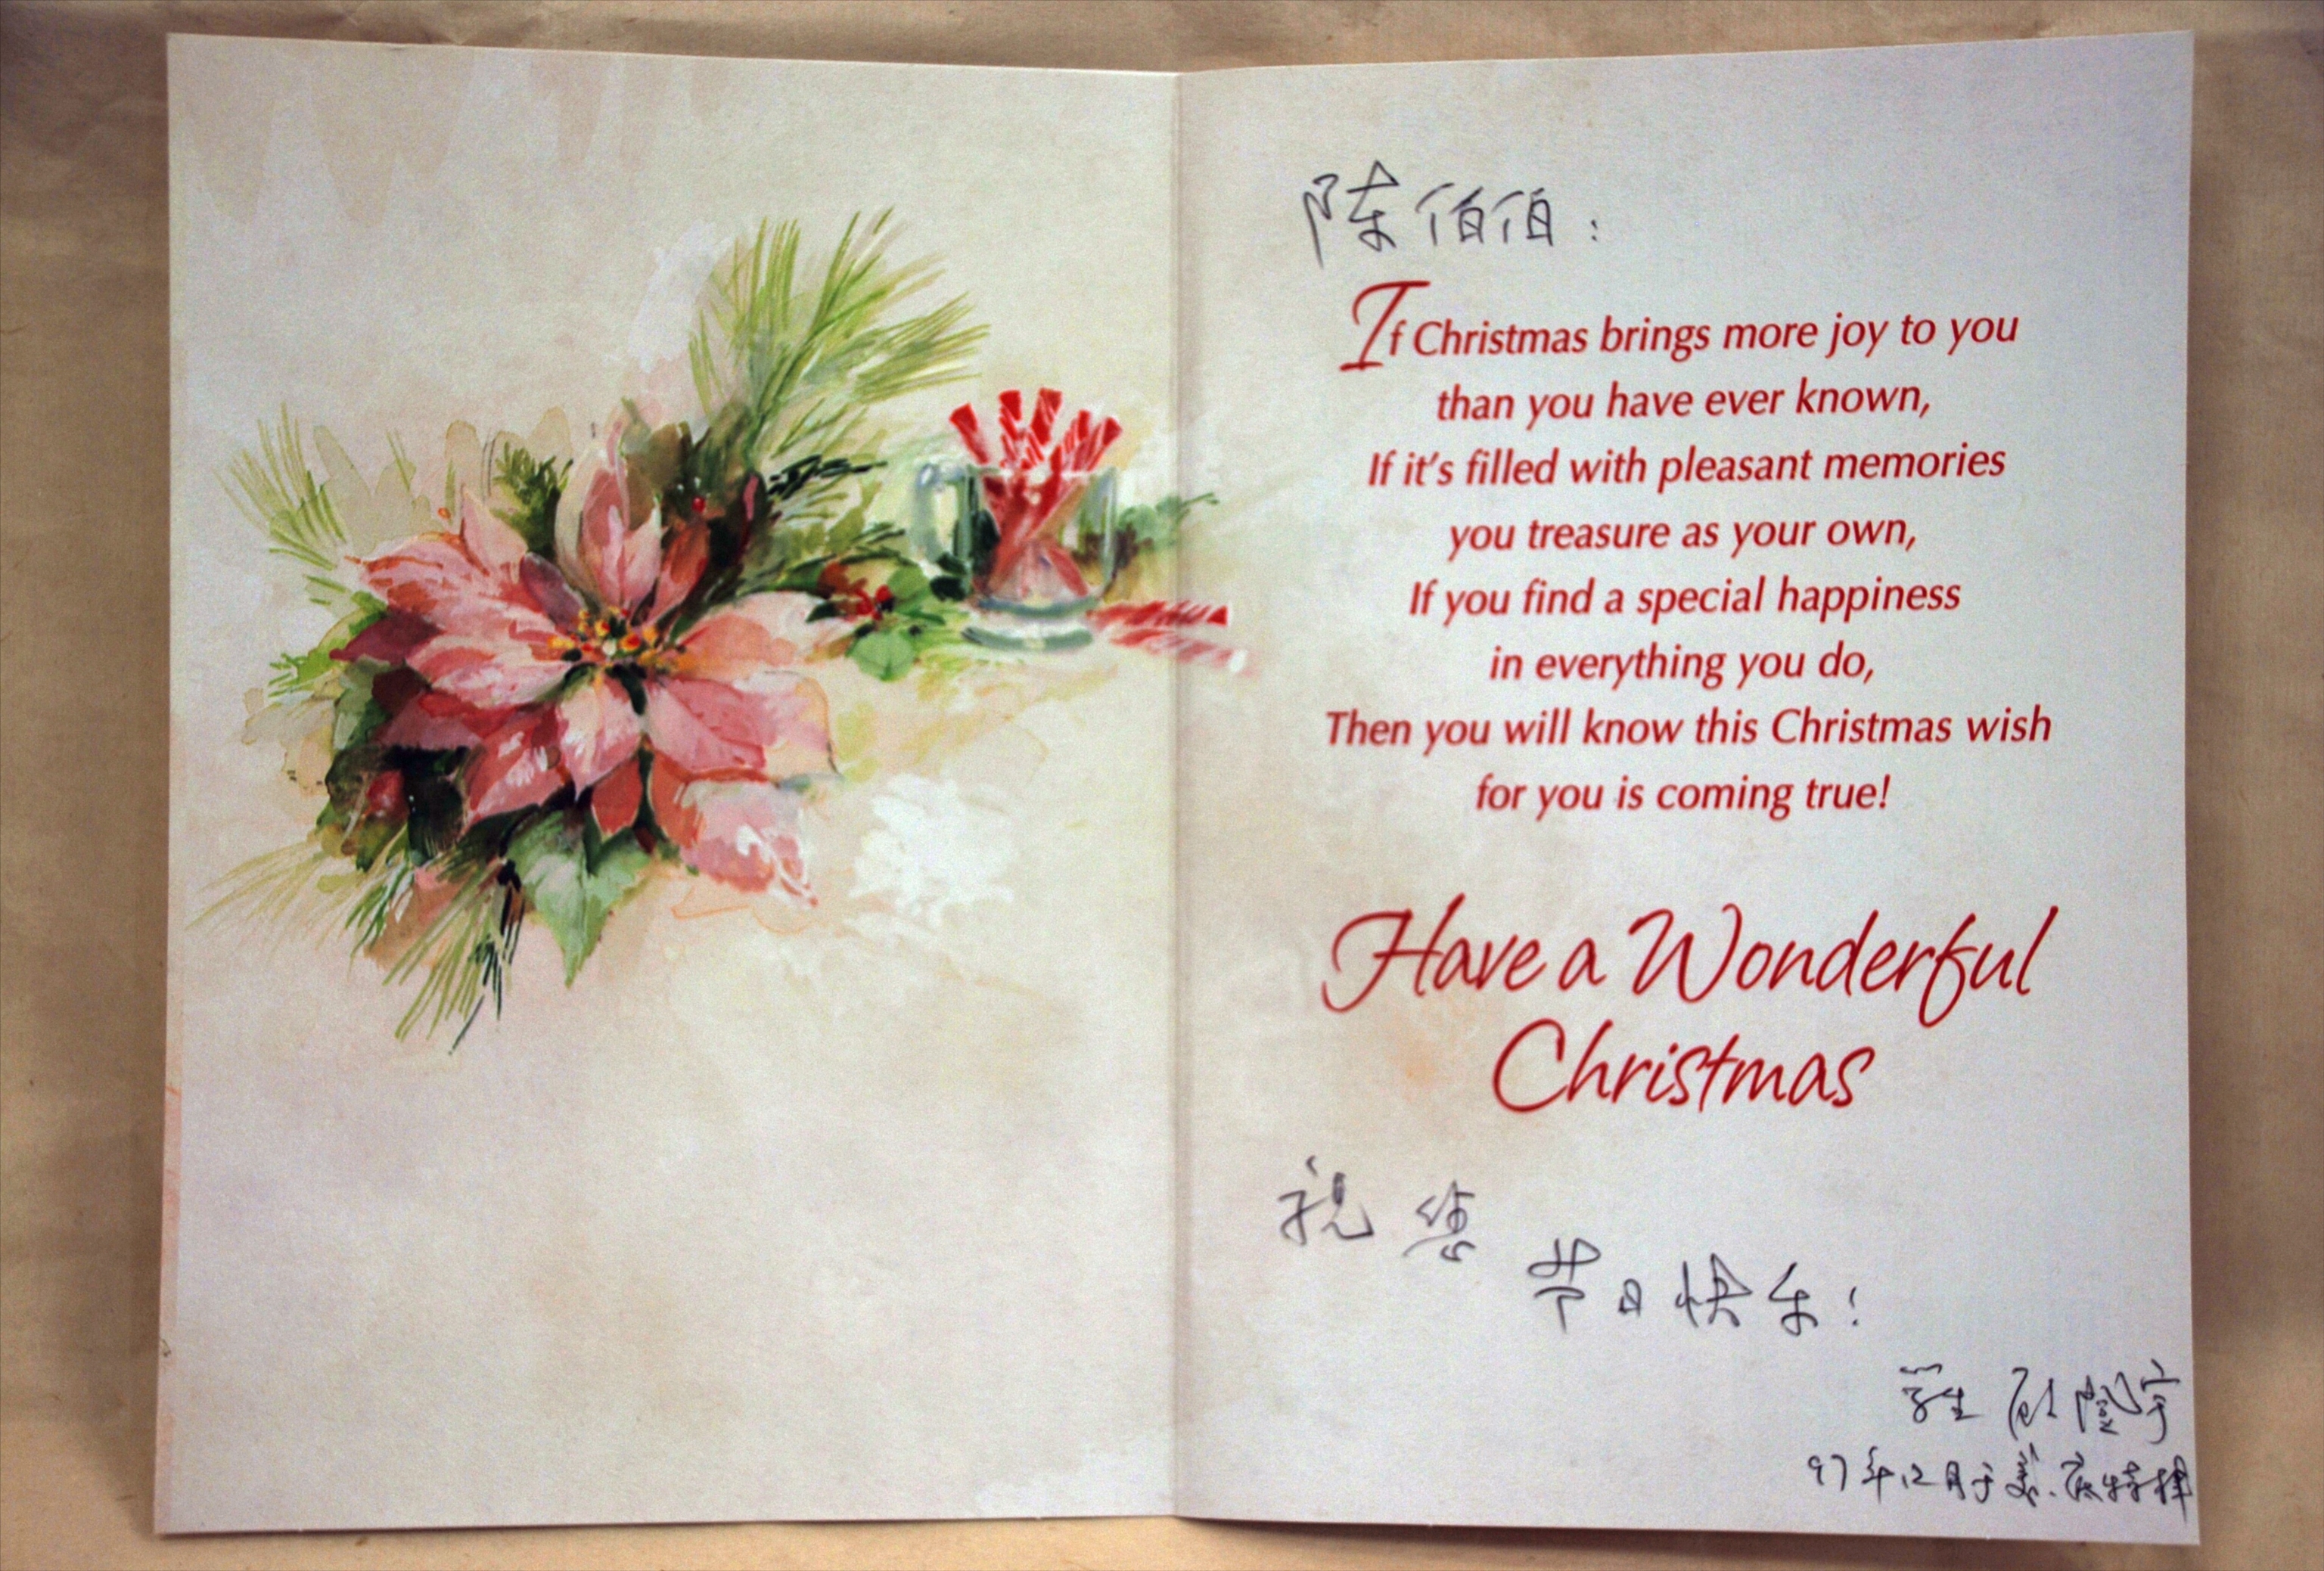 陈伯伯：
If Christmas brings more joy to you
than you have ever known,
If it's filled with pleasant memories
you treasure as your own,
If you find a special happiness
in everything you do,
Then you will know this Christmas wish
for you is coming true!
Have a Wonderful
Christmas
祝您
节日快乐！
学生 顾隆宇
97年12月于美.底特律